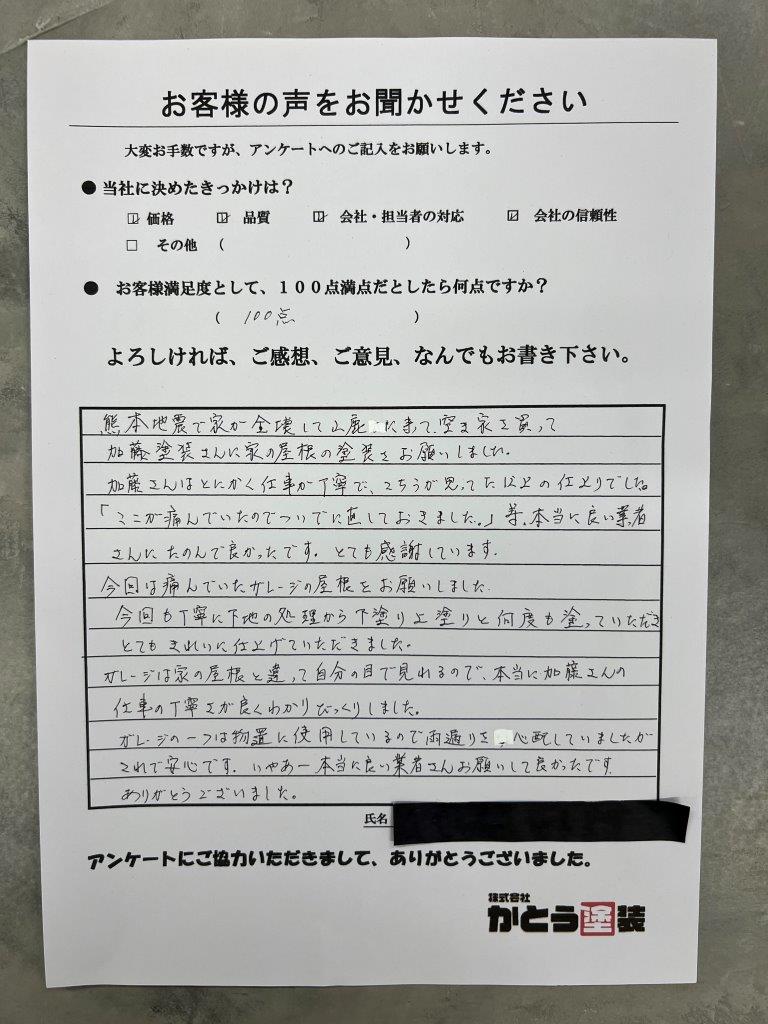 お客様の声をお聞かせください
大変お手数ですが、アンケートへのご記入をお願いします。
● 当社に決めたきっかけは？
☑ 価格 ☑ 品質 ☑ 会社・担当者の対応 ☑ 会社の信頼性
□ その他 （ ）
● お客様満足度として、１００点満点だとしたら何点ですか？
（ 100点 ）
よろしければ、ご感想、ご意見、なんでもお書き下さい。
熊本地震で家が全壊して山鹿に来て、空き家を買って
加藤塗装さんに家の屋根の塗装をお願いしました。
加藤さんはとにかく仕事が丁寧で、こちらが思ってた以上の仕上りでした。
「ここが痛んでいたのでついでに直しておきました。」等、本当に良い業者
さんにたのんで良かったです。とても感謝しています。
今回は痛んでいたガレージの屋根をお願いしました。
今回も丁寧に下地の処理から下塗り上塗りと何度も塗っていただき
とてもきれいに仕上げていただきました。
ガレージは家の屋根と違って自分の目で見れるので、本当に加藤さんの
仕事の丁寧さが良くわかりびっくりしました。
ガレージの一つは物置に使用しているので雨漏りを心配していましたが
これで安心です。いやあー本当に良い業者さんお願いして良かったです。
ありがとうございました。
氏名
アンケートにご協力いただきまして、ありがとうございました。
株式会社
かとう塗装